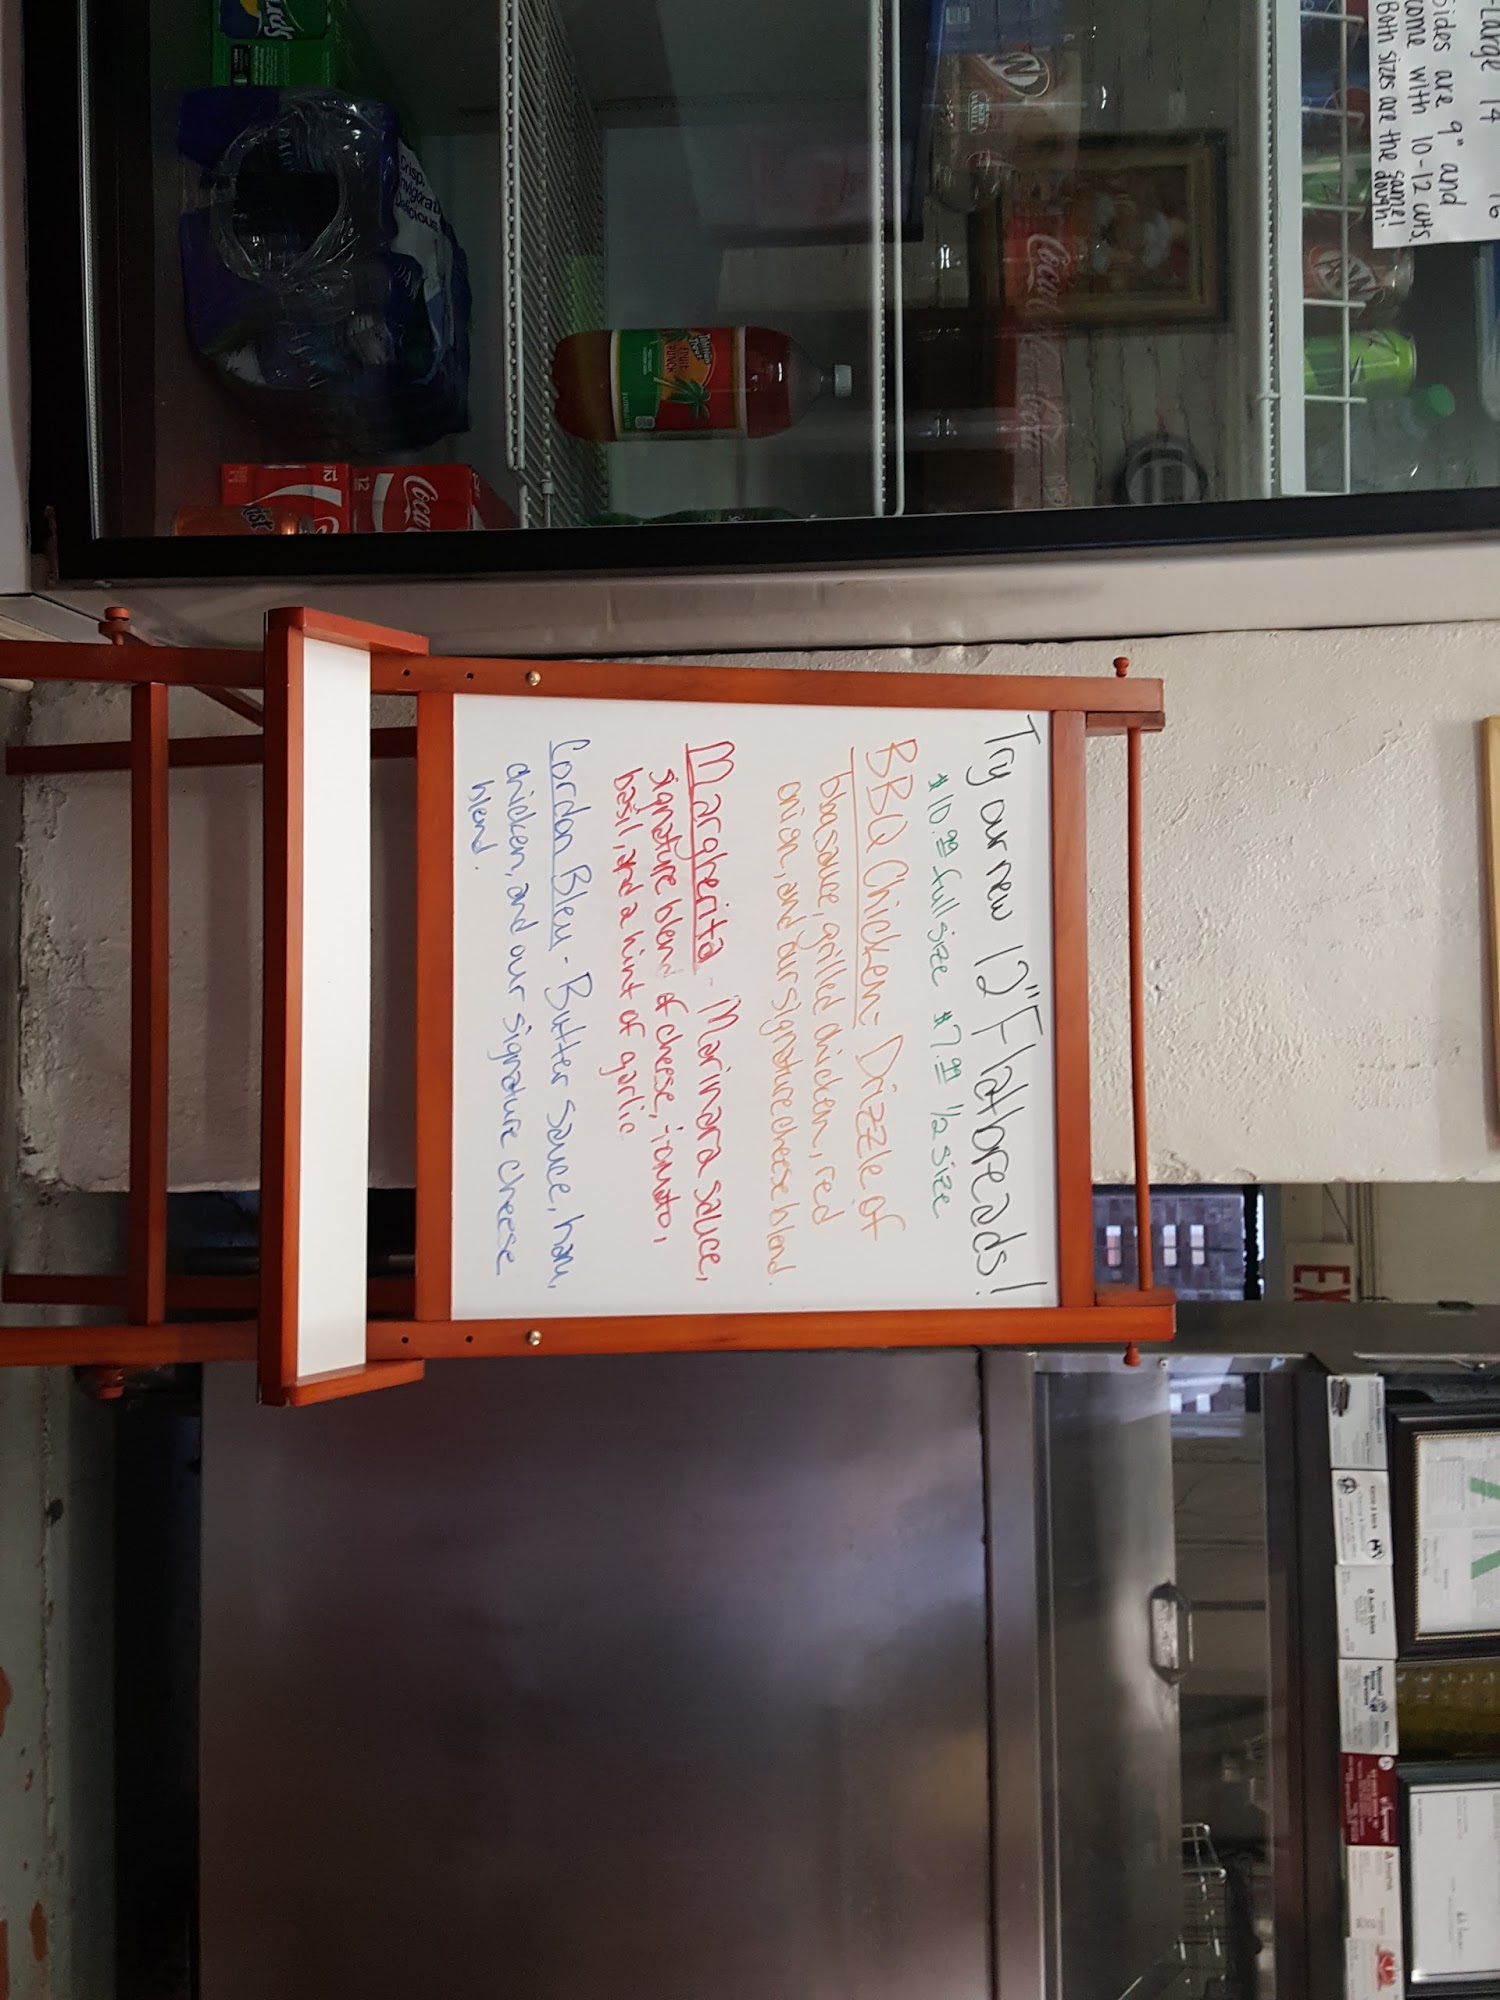 Try our new 12" Flatbreads!
$10.99 full size $7.99 1/2 size
BBQ Chicken- Drizzle of
bbq sauce, grilled chicken, red
onion, and our signature cheese blend.
Margherita - Marinara sauce,
signature blend of cheese, tomato,
basil, and a hint of garlic
Cordon Bleu - Butter sauce, ham,
chicken, and our signature cheese
blend.
-Large 14 16
Sides are 9" and
come with 10-12 cuts.
Both sizes are the same
dough!
Coca
Tahitian
Treat
FRUIT
PUNCH
A&W
Crisp,
12
12
Coca
EX